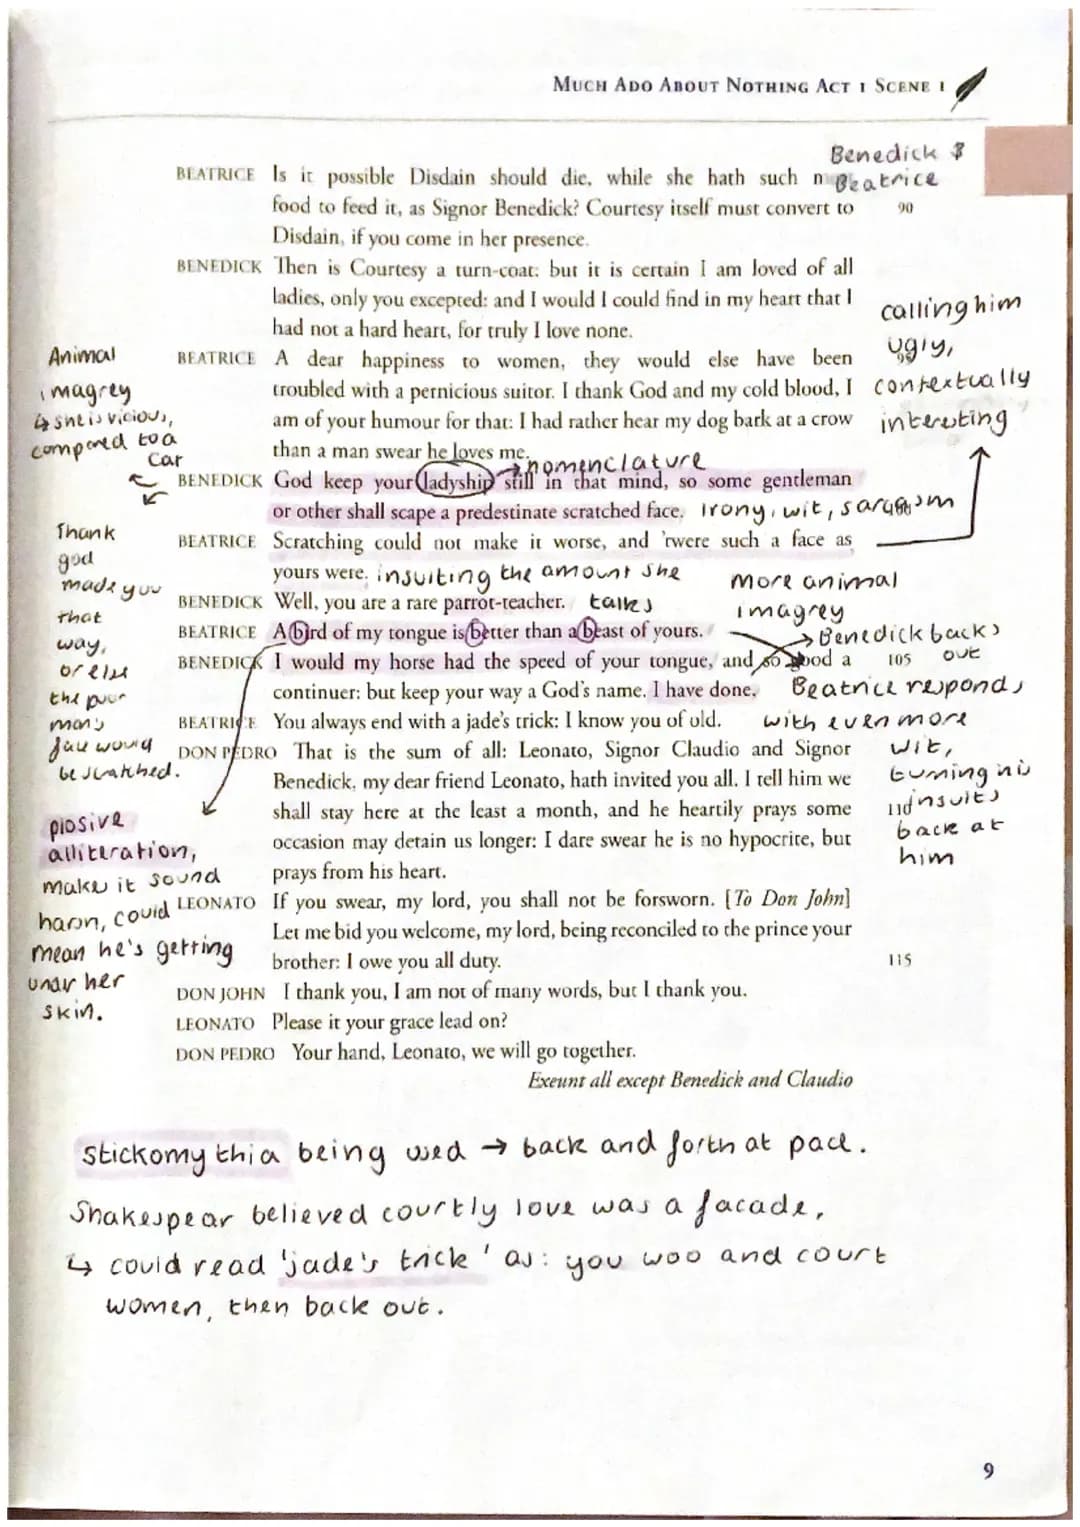 MUCH ADO ABOUT NOTHING ACT 1 SCENE 1
Benedick &
Beatrice
BEATRICE Is it possible Disdain should die, while she hath such m
food to feed it, as Signor Benedick? Courtesy itself must convert to 90
Disdain, if you come in her presence.
BENEDICK Then is Courtesy a turn-coat: but it is certain I am loved of all
ladies, only you excepted: and I would I could find in my heart that I
had not a hard heart, for truly I love none.
BEATRICE A dear happiness to women, they would else have been
troubled with a pernicious suitor. I thank God and my cold blood, I
am of your humour for that: I had rather hear my dog bark at a crow
than a man swear he loves me.
BENEDICK God keep your ladyship still in that mind, so some gentleman
or other shall scape a predestinate scratched face.
BEATRICE Scratching could not make it worse, and 'twere such a face as
yours were.
BENEDICK Well, you are a rare parrot-teacher.
BEATRICE A bird of my tongue is better than a beast of yours.
BENEDICK I would my horse had the speed of your tongue, and so good a 105
continuer: but keep your way a God's name. I have done.
BEATRICE You always end with a jade's trick: I know you of old.
DON PEDRO That is the sum of all: Leonato, Signor Claudio and Signor
Benedick, my dear friend Leonato, hath invited you all. I tell him we
shall stay here at the least a month, and he heartily prays some 110
occasion may detain us longer: I dare swear he is no hypocrite, but
prays from his heart.
LEONATO If you swear, my lord, you shall not be forsworn. [To Don John]
Let me bid you welcome, my lord, being reconciled to the prince your
brother: I owe you all duty. 115
DON JOHN I thank you, I am not of many words, but I thank you.
LEONATO Please it your grace lead on?
DON PEDRO Your hand, Leonato, we will go together.
Exeunt all except Benedick and Claudio
Animal
imagrey
↳ she is vicious,
compared to a
car
Thank
god
made you
that
way,
or else
the poor
man's
face would
be scratched.
plosive
alliteration,
make it sound
harsh, could
mean he's getting
under her
skin.
calling him
ugly,
contextually
interesting
nomenclature
irony, wit, sarcasm
insulting the amount she
talks
more animal
imagrey
Benedick backs
out
Beatrice responds
with even more
wit,
turning his
insults
back at
him
stickomythia being used → back and forth at pace.
Shakespear believed courtly love was a facade,
↳ could read 'jade's trick' as: you woo and court
women, then back out.
9